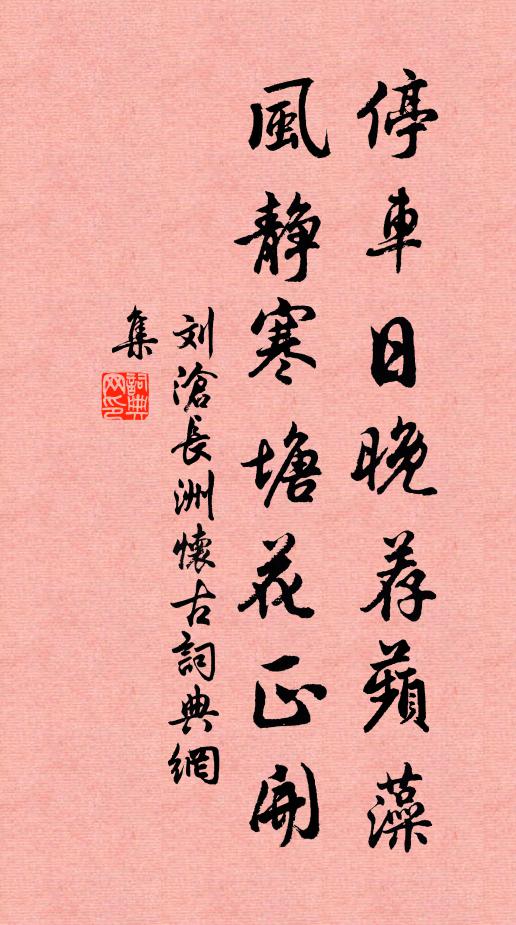 停車日晚荐蘋藻
風静寒塘花正開
刘滄長洲懷古詞典網
集
詞典
网印